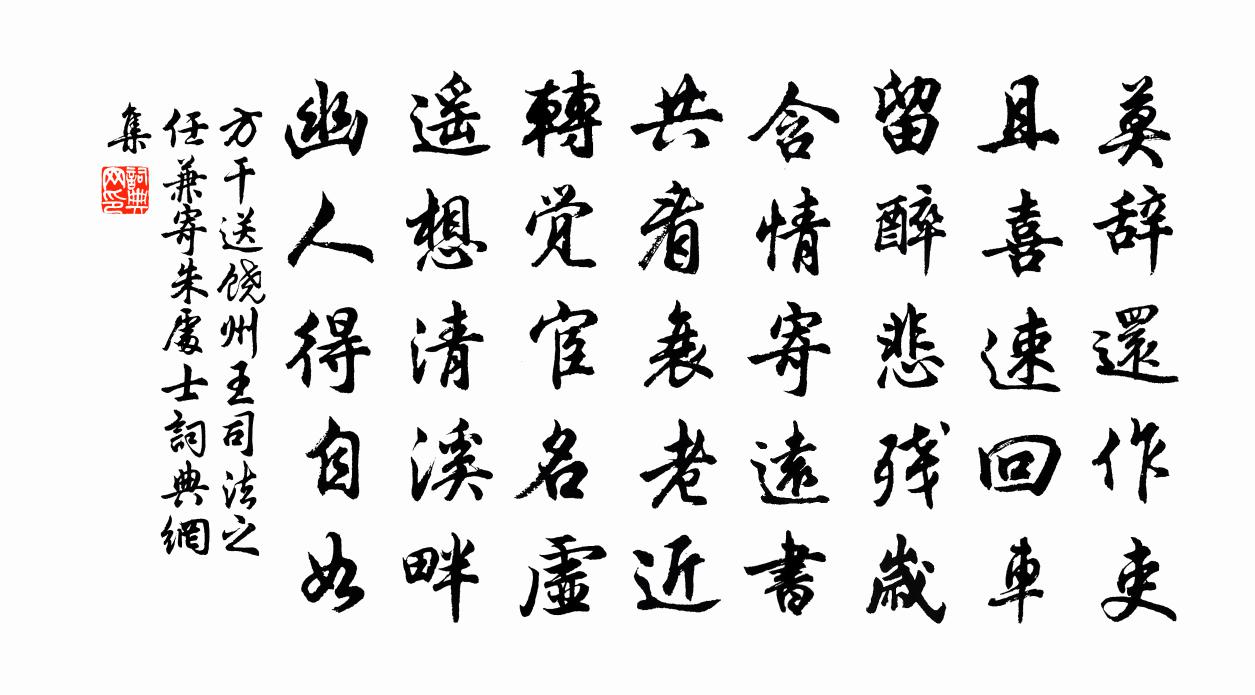 莫辞還作吏
且喜速回車
留醉悲残歲
含情寄遠書
共看衰老近
轉觉宦名虛
遥想清溪畔
幽人得自如
方干送饶州王司法之
任兼寄朱處士詞典網
集
詞典
网印